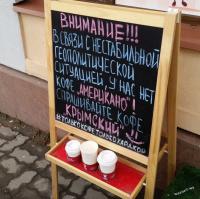 ВНИМАНИЕ!!!
В СВЯЗИ С НЕСТАБИЛЬНОЙ
ГЕОПОЛИТИЧЕСКОЙ
СИТУАЦИЕЙ У НАС НЕТ
КОФЕ „АМЕРИКАНО"!
СПРАШИВАЙТЕ КОФЕ
„КРЫМСКИЙ"!!
#ТОЛЬКОКОФЕТОЛЬКОХАРДКОР